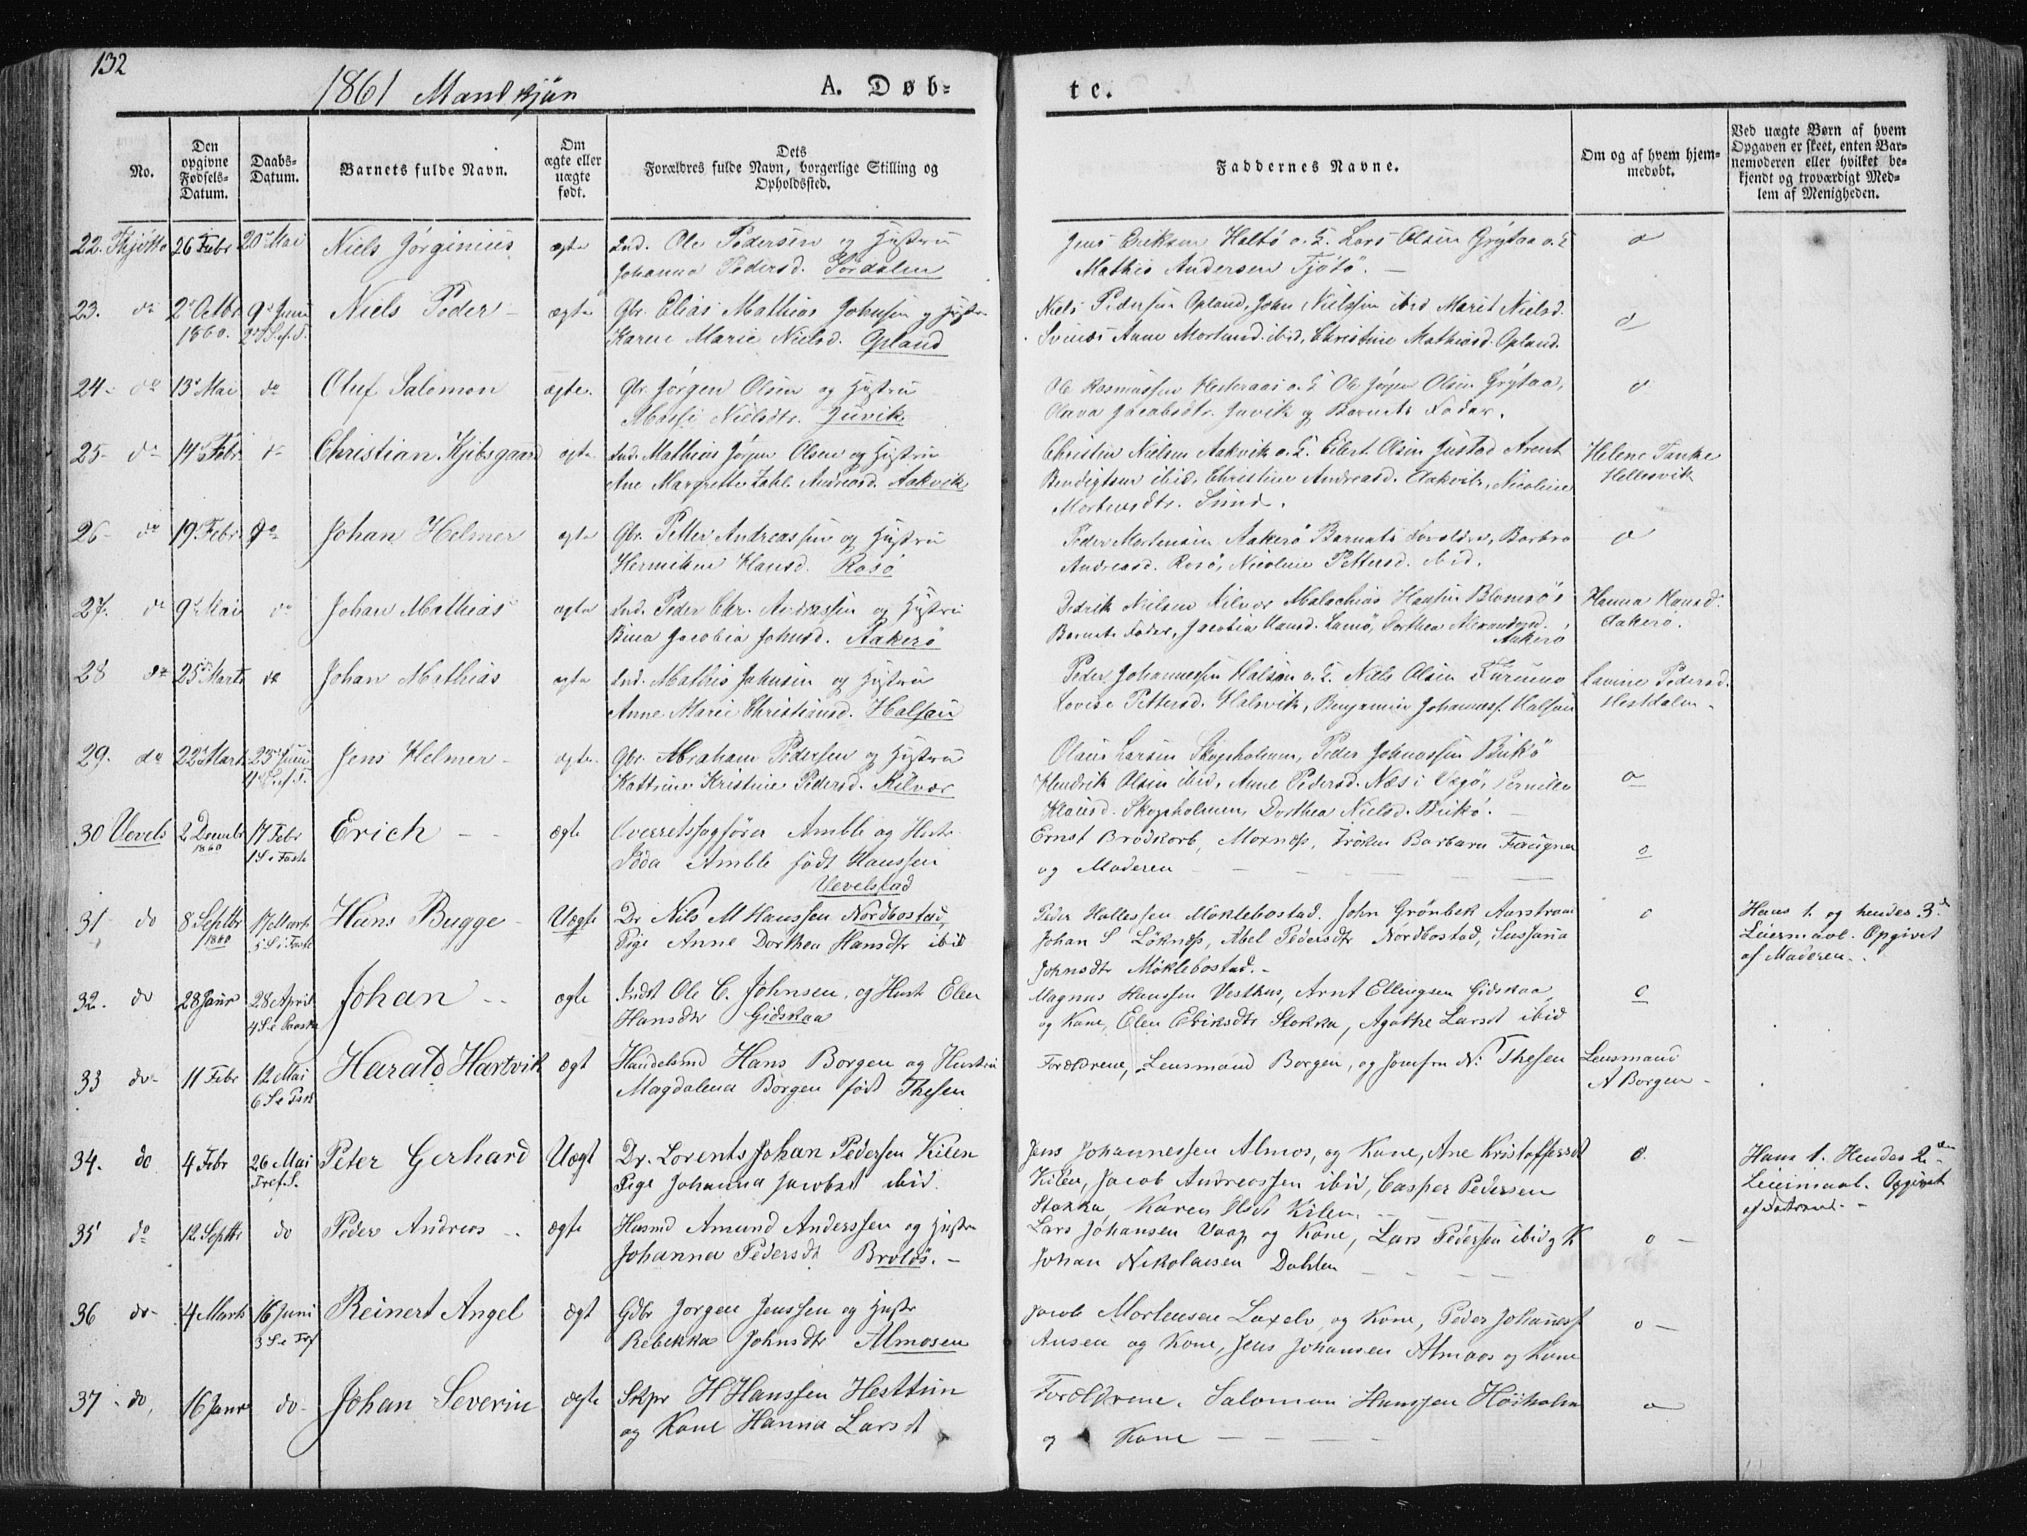 132
1861 Mandkjøn
A. Døb-
te.
No.
Den opgivne Fødsels-Datum.
Daabs-Datum.
Barnets fulde Navn.
Om ægte eller uægte født.
Dets Forældres fulde Navn, borgerlige Stilling og Opholdssted.
Faddernes Navne.
Om og af hvem hjem-medøbt.
Ved uægte Børn af hvem Opgaven er skeet, enten Bar-nemoderen eller hvilket be-kjendt og troværdigt Med-lem af Menigheden.
22. Thjøttø 26 Febr 20de Mai Niels Jørginius ægte Ind. Ole Pedersen og Hustru
Johanna Pedersd. Sördalen
Jens Eriksen Haltö o. H. Lars Olsen Grytaa o. H
Mathis Andersen Tjötö. — o
23. do 2de Octbr 1860. 9de Juni 2 S. e. T. Niels Peder ægte Gbr. Elias Mathias Johnsen og Hustru
Karen Marie Nielsd. Opland
Niels Pedersen Opland, John Nielssen ibid Marit Nielsd.
Svinæs Anne Mortensd. ibid, Christine Mathiasd. Opland. o
24. do 13de Mai do Oluf Salomon ægte. Gbr. Jörgen Olsen og Hustru
Massi Nielsdtr. Juvik
Ole Rasmussen Hesteraas o. H Ole Jörgen Olsen Grytaa,
Olava Jacobsdtr. Juvik og Barnets Fader. o
25 do 14de Febr do Christian Kjibsgaard ægte Ind. Mathias Jörgen Olsen og Hustru
Ane Margrethe Zahl Andreasd. Aakvik
Christen Nielsen Aakvik o. H. Eilert Olsen Justad Arent
Bendigtsen ibid, Christine Andreasd. Aakvik, Nicoline
Mortensdtr. Sund.
Helene Tanke
Hellesvik
26 do 19 Febr do Johan Helmer ægte Gbr. Petter Andreassen og Hustru
Hermikine Hansd. Rosö
Peder Mortensen Aakerö Barnets Forældre, Barbro
Andreasd. Rosö, Nicoline Pettersd. ibid. o
27. do 9de Mai do Johan Mathias ægte Ind. Peder Chr. Andreassen og Hustru
Bina Jacobia Johnsd. Aakerö
Didrik Nielsen Kilvær Malachias Hansen Blomsö,
Barnets Fader, Jacobia Hansd. Lamö, Dorthea Alexandersd.
Aakerö
Hanna Hansd.
Aakerö.
28 do 25de Marts do Johan Mathias ægte Ind. Mathis Johnsen og Hustru
Anne Marie Christiansd. Halsan
Peder Johannessen Halsan o. H. Niels Olsen Furuno
Lovise Pettersd. Halsvik, Benjamin Johanness. Halsan
Lavine Pedersd.
Hestdalen
29. do 22de Marts 23de Juni 4 S. e. T. Jens Helmer ægte. Gbr. Abraham Pedersen og Hustru
Kattrine Kristine Pedersd. Kilvær
Olaus Larsen Skogsholmen, Peder Johnassen Bukö
Hendrik Olsen ibid, Anne Pedersd. Næs i Vegö, Pernille
Klausd. Skogsholmen, Dorthea Nielsd. Bukö. — o
30 Vevels 2 Decembr 1860 17 Febr 1 S i Faste Erich ægte Overretssagfører Amble og Hustr
Töa Amble født Hanssen
Vevelstad
Ernst Brodkorb, Mornæs, Frøken Barbara Faugner
og Moderen o
31 do 8 Septbr 1860 17 Marts 5 S i Faste Hans Bugge Uægte Dr. Nils M Hanssen Nordbostad,
Pige Anne Dorthea Hansdtr ibid
Peder Hallessen Möklebostad. John Grønbek Aarstrøm
Johan S Löknæs, Abel Pedersdtr Nordbostad, Sussana
Johnsdtr Möklebostad. — o
Hans 1. og hendes 3de
Leiermaal. Opgivet
af Moderen.
32. do 28 Janr 28 April 4 S. e Paaske Johan ægte Indst Ole C. Johnsen, og Hust Elen
Hansdtr Gidskaa
Magnus Hanssen Vesthus, Arnt Ellingsen Gidskaa
og Kone, Elen Eriksdtr Stokka, Agathe Larsdt ibid o
33 do 11 Febr 12 Mai 6 S e Psk Harald Hartvik ægt Handelsmd Hans Borgen og Hustru
Magdalena Borgen født Thesen
Forældrene, Lensmand Borgen, og Jomfru N. Thesen
Lensmand
A Borgen
34. do 4 Febr 26 Mai Tref. S. Peter Gerhard Uægt Dr. Lorents Johan Pedersen Kilen
Pige Johanna Jacobsdt ibid.
Jens Johannessen Almos, og Kone, Ane Kristoffersdt
Kilen, Jacob Andreassen ibid, Casper Pedersen
Stokka, Karen Olsdt Kilen. o.
Hans 1. Hendes 2den
Leiermaal. Opgivet
35 do 12 Septbr do Peder Andreas ægte Husmd Amund Anderssen og Hustru
Johanna Pedersdt Brotös. —
Lars Johansen Vaag og Kone, Lars Pedersen ibid og K
Johan Nikolaisen Dahlen o
36 do 4 Marts 16 Juni 3 S e Tref Reinert Angel ægt Gdbr Jørgen Jenssen og Hustr
Rebekka Johnsdtr Almosen
Jacob Mortensen Laxelv og Kone, Peder Johaness
Ausen og Kone, Jens Johansen Almaas og Kone o
37 do. 16 Janr do Johan Severin ægte Skpr H Hanssen Hesttun
og Kone Hanna Larsdt
Forældrene. Salomon Hanssen Høiholm
og Kone o